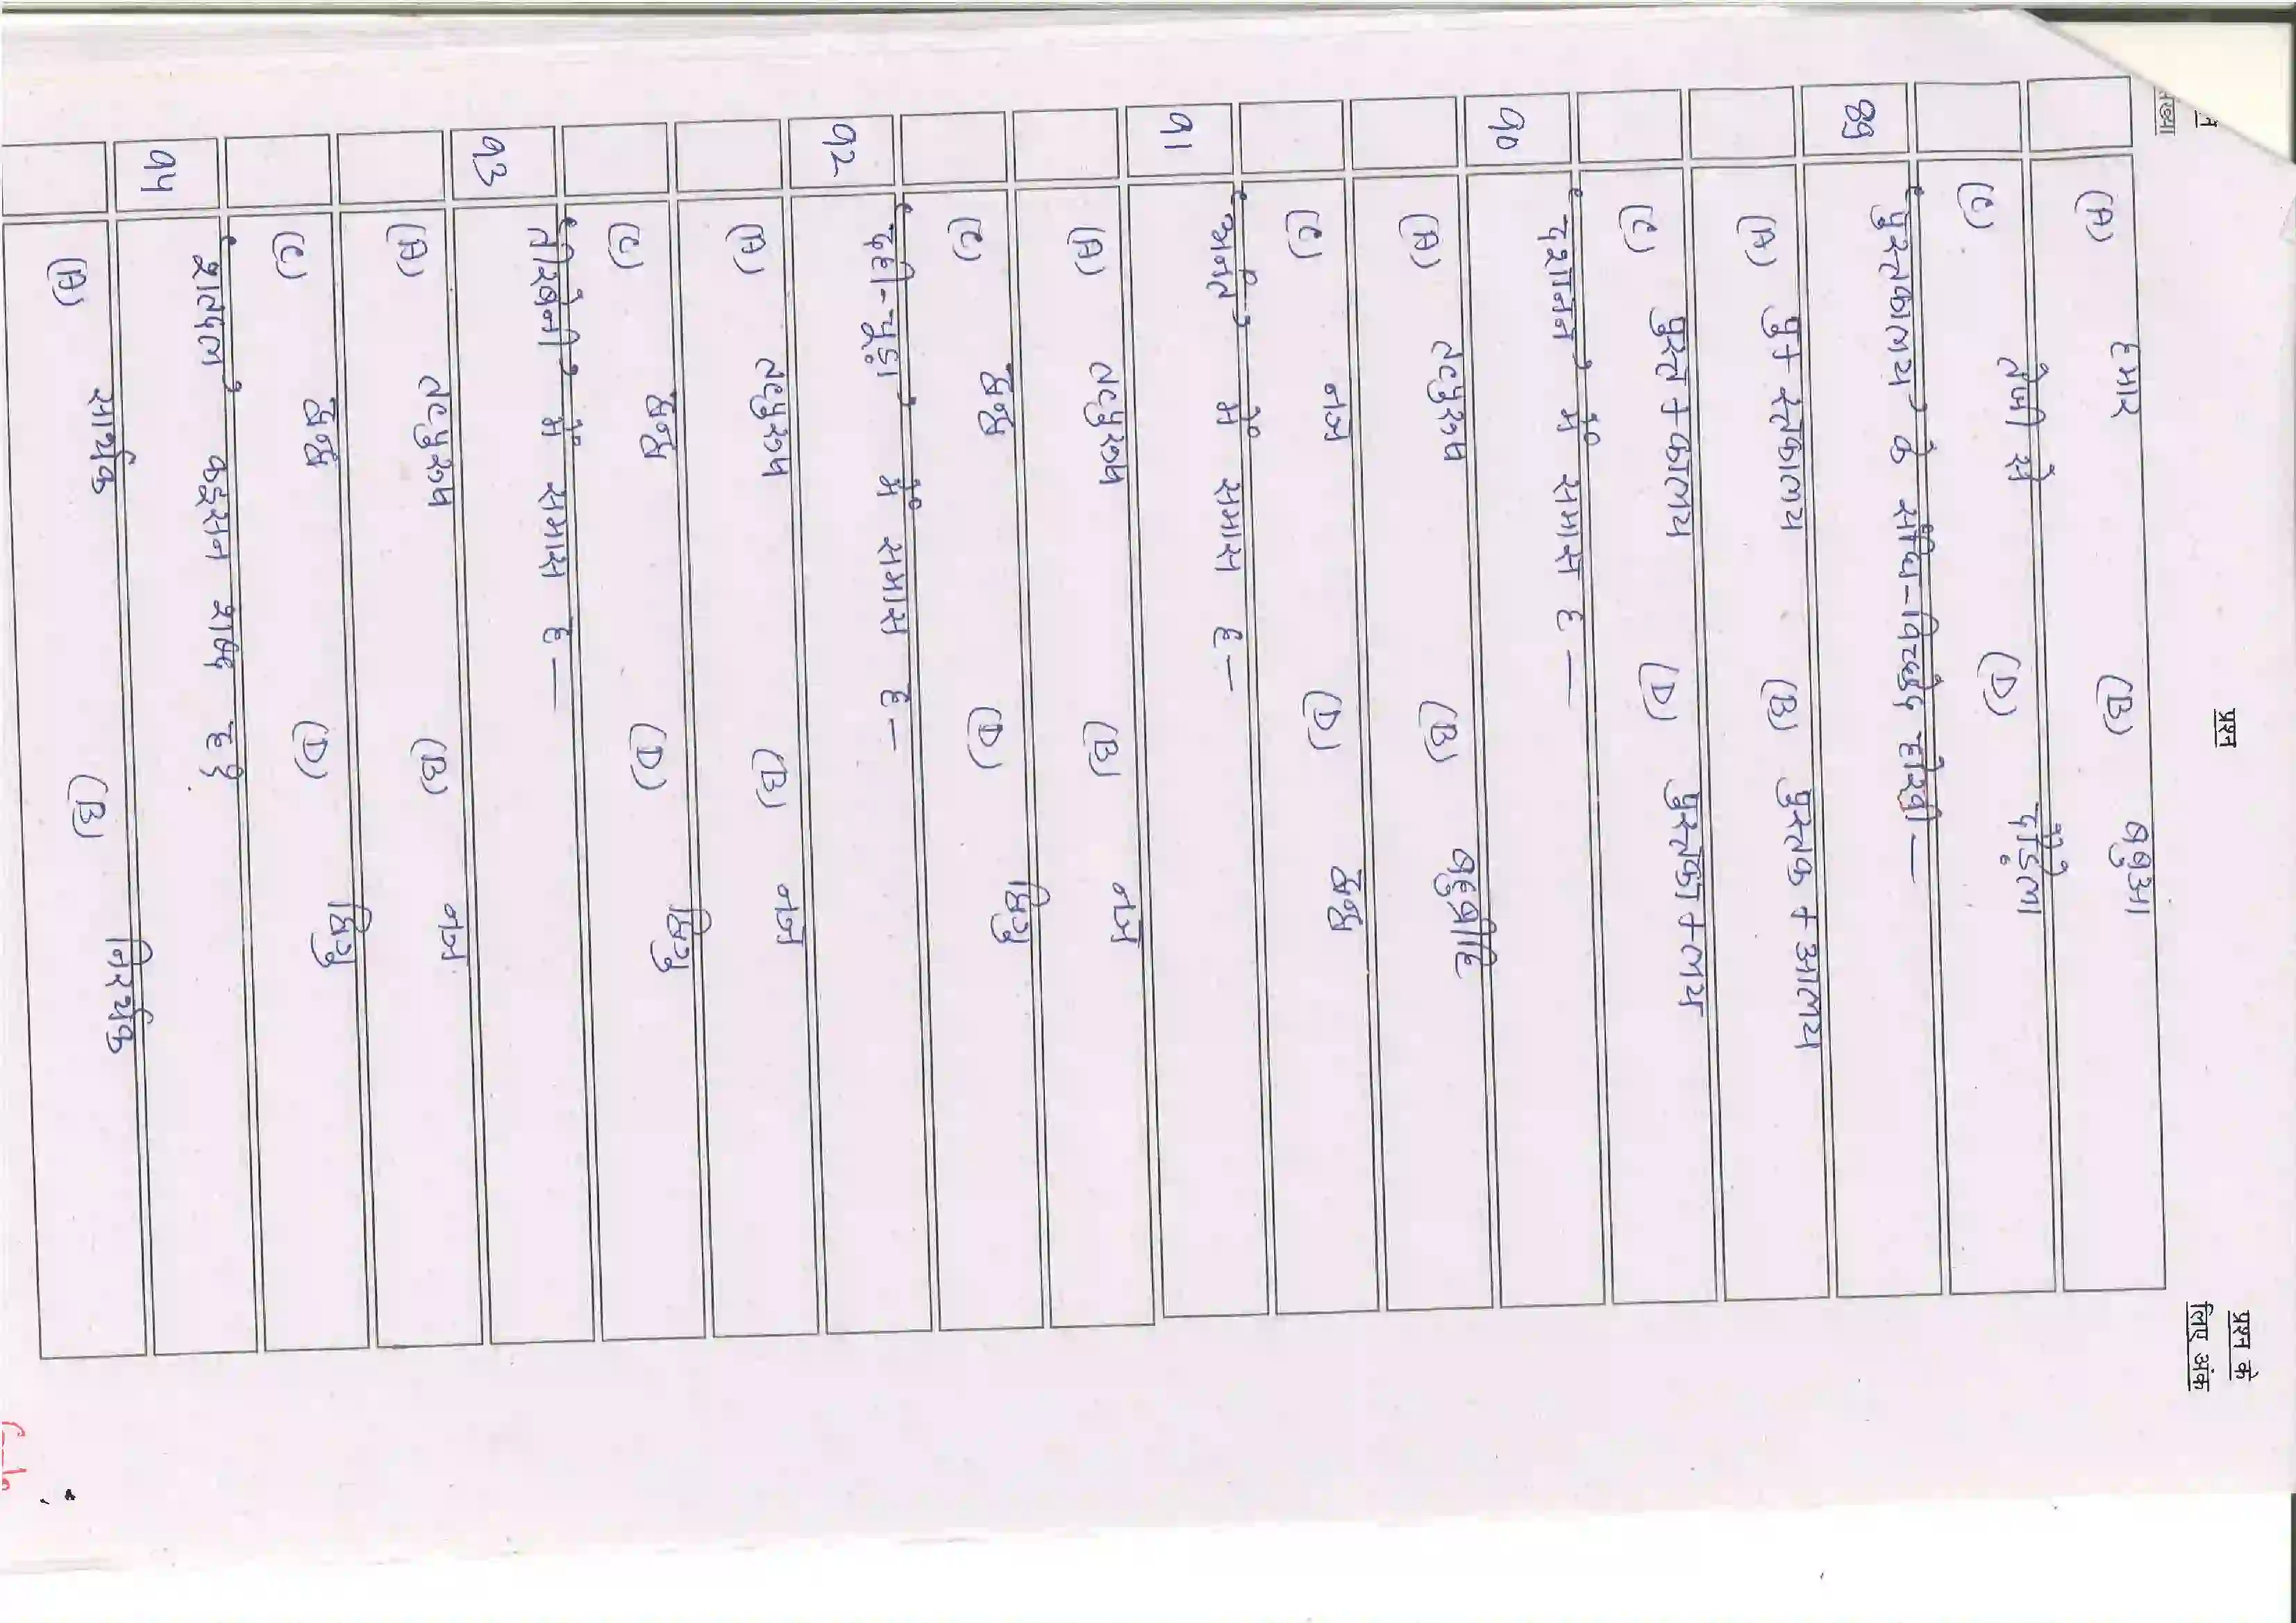 प्रश्न
प्रश्न के
लिए अंक
(A) हमार (B) बबुआ
(C) तेजी से (D) दौड़ल
89 'पुस्तकालय' के संधि-विच्छेद होखी —
(A) पु + स्तकालय (B) पुस्तक + आलय
(C) पुस्त + कालय (D) पुस्तका + लय
90 'दशानन' में समास ह —
(A) तत्पुरूष (B) बहुब्रीहि
(C) नञ (D) द्वन्द्व
91 'अनंत' में समास ह —
(A) तत्पुरूष (B) नञ
(C) द्वन्द्व (D) द्विगु
92 'दही-चूड़ा' में समास ह —
(A) तत्पुरूष (B) नञ
(C) द्वन्द्व (D) द्विगु
93 में समास ह —
(A) तत्पुरूष (B) नञ
(C) द्वन्द्व (D) द्विगु
94 कइसन शब्द हई
(A) सार्थक (B) निरर्थक